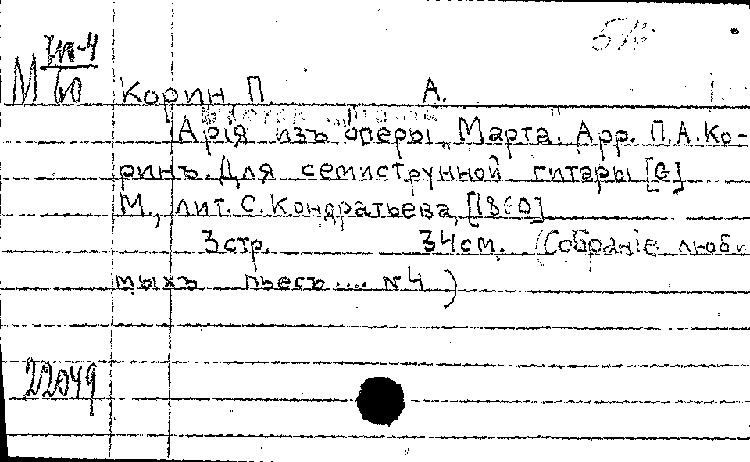 М
60
Корин П. А.
Арія изъ оперы „Марта". Арр. П.А.Ко-
ринъ. Для семиструнной гитары [G]
М., лит. С. Кондратьева, [1860]
3 стр. 34 см. (Собраніе люби
мыхъ пьесъ .... №4)
22049